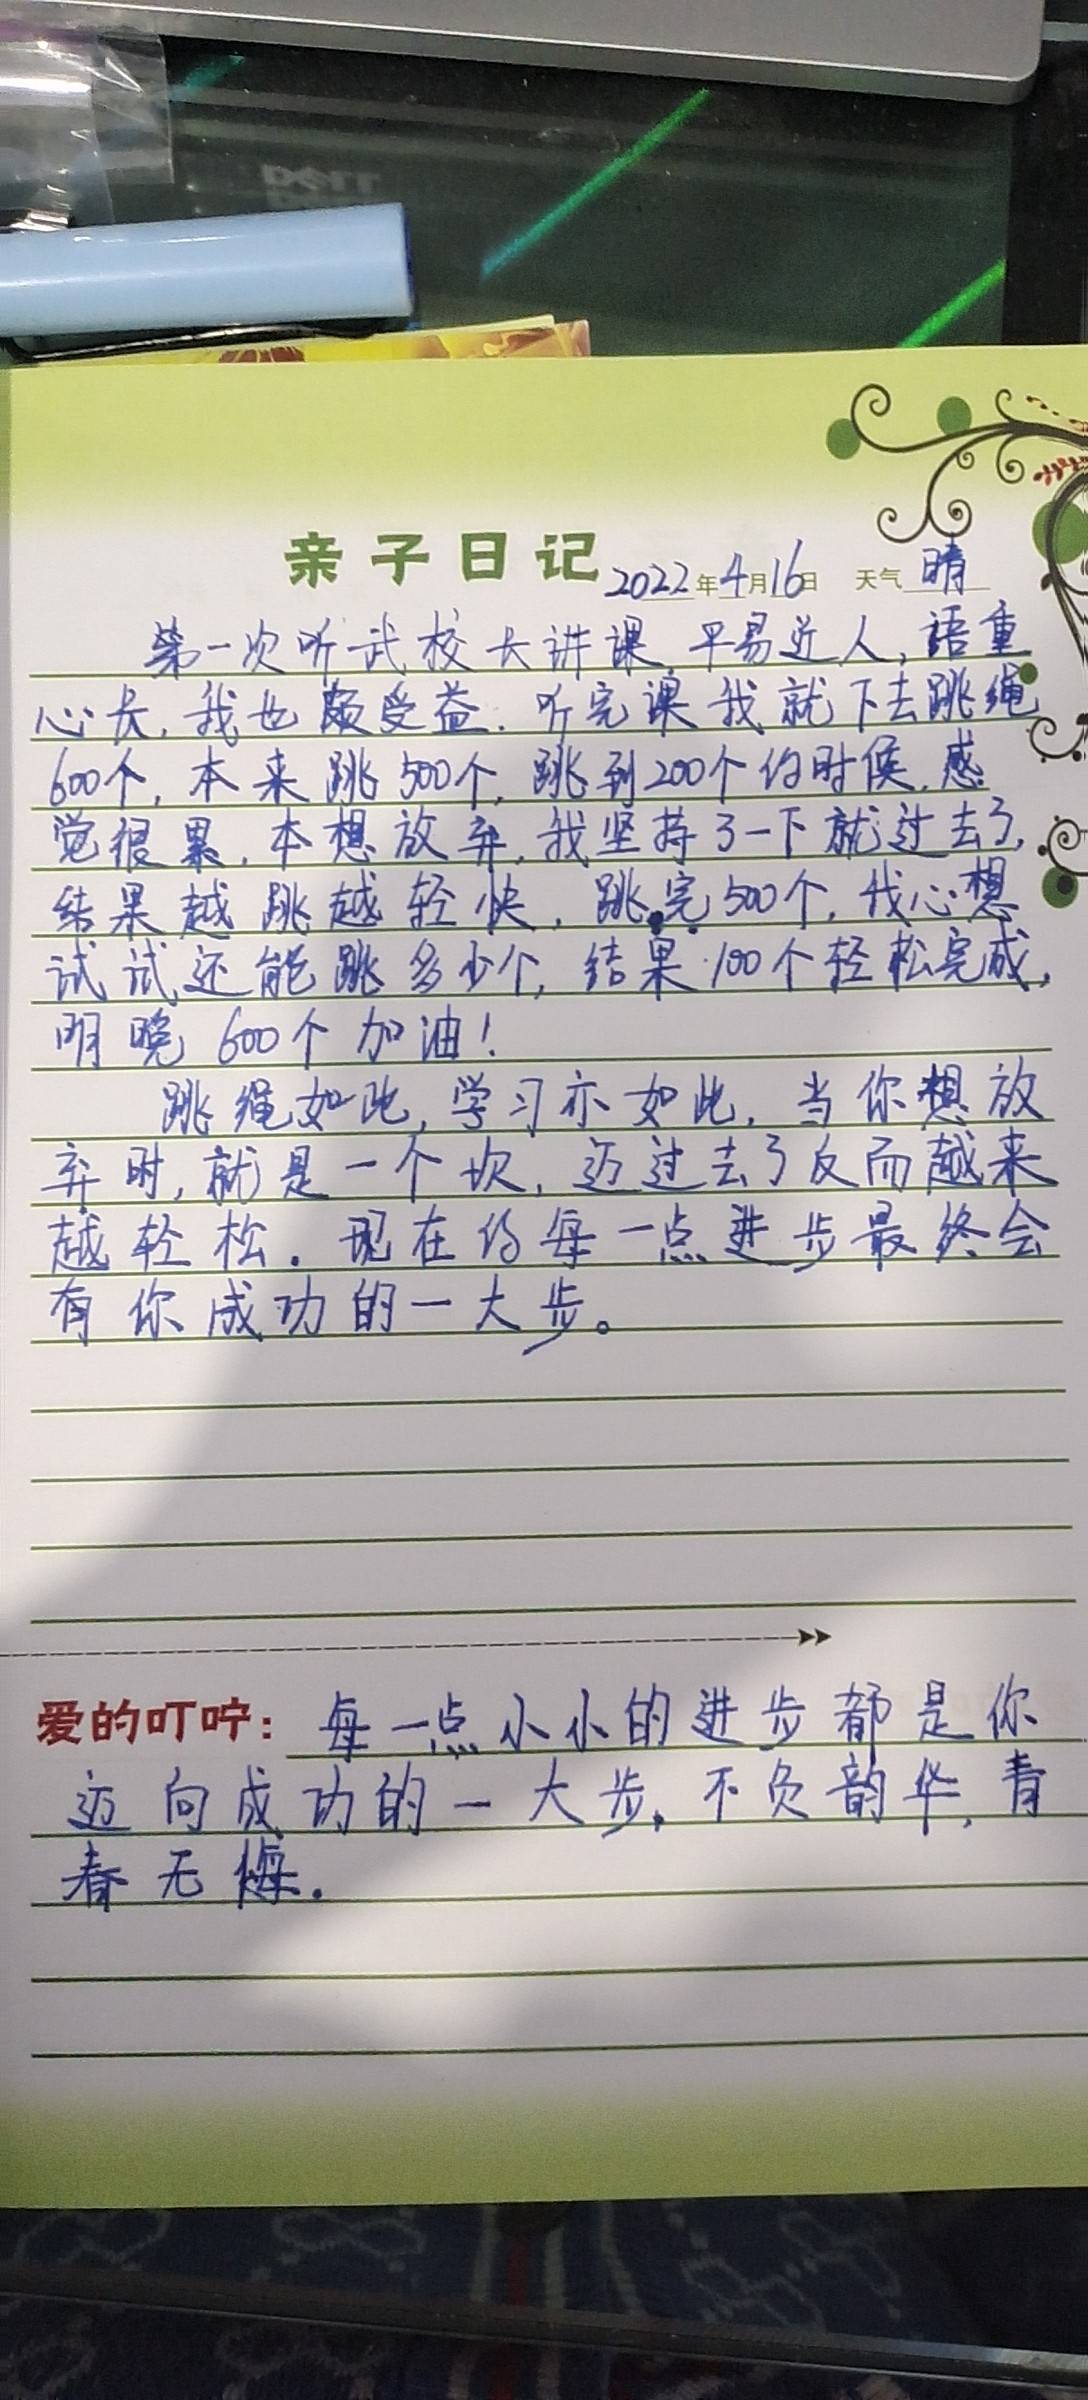 DELL
亲子日记 2022年4月16日 天气 晴
第一次听武校长讲课,平易近人,语重
心长,我也颇受益.听完课我就下去跳绳
600个,本来跳500个,跳到200个的时候,感
觉很累,本想放弃,我坚持了一下就过去了,
结果越跳越轻快,跳完500个,我心想
试试还能跳多少个,结果100个轻松完成,
明晚600个加油!
跳绳如此,学习亦如此,当你想放
弃时,就是一个坎,迈过去了反而越来
越轻松.现在的每一点进步最终会
有你成功的一大步。
爱的叮咛:每一点小小的进步都是你
迈向成功的一大步,不负韵华,青
春无悔.